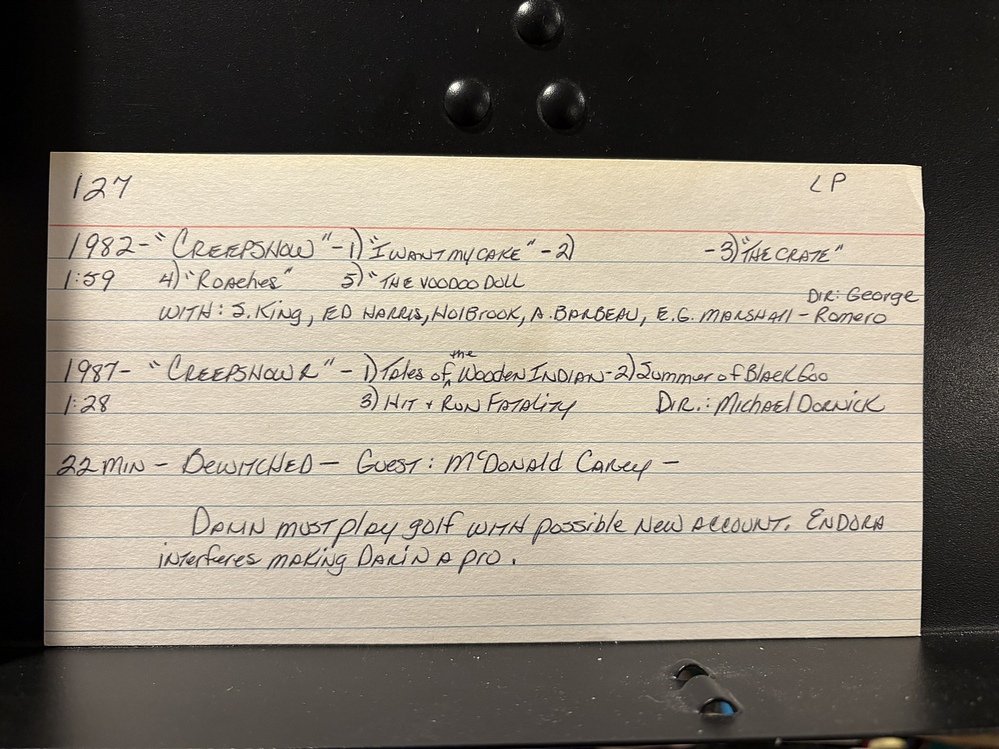 127 LP
1982- "CREEPSHOW" -1) "I WANT MY CAKE" -2) -3) "THE CRATE"
1:59 4) "Roaches" 5) "THE VOODOO DOLL
DIR: George
WITH: S. King, ED HARRIS, HOlBROOK, A. BARBEAU, E.G. MARSHAll - Romero
1987- "CREEPSHOW 2" - 1) Tales of the Wooden INDIAN -2) Summer of Black Goo
1:28 3) HIT + RUN FATALITY DIR.: Michael DORNICK
22 MIN - BEWITCHED - GUEST: McDONAld CAREY -
DARIN must play golf WITH possible NEW ACCOUNT. ENDORA
interferes making DARIN A pro.